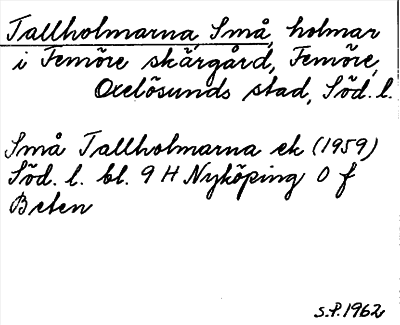 Tallholmarna, Små, holmar
i Femöre skärgård, Femöre,
Oxelösunds stad, Söd. l.
Små Tallholmarna ek (1959)
Söd. l. bl. 9 H Nyköping 0 f
Beten
S.P. 1962